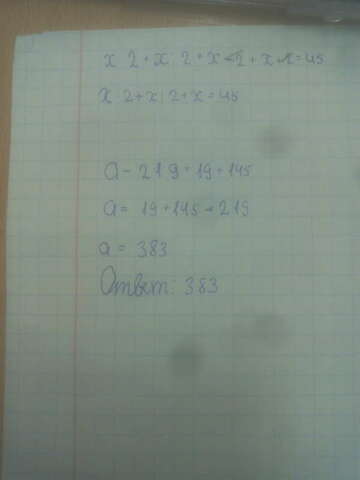 x 2 + x : 2 + x - 2 + x + x = 45
x · 2 + x : 2 + x = 45
a - 219 = 19 + 145
a = 19 + 145 + 219
a = 383
Ответ: 383